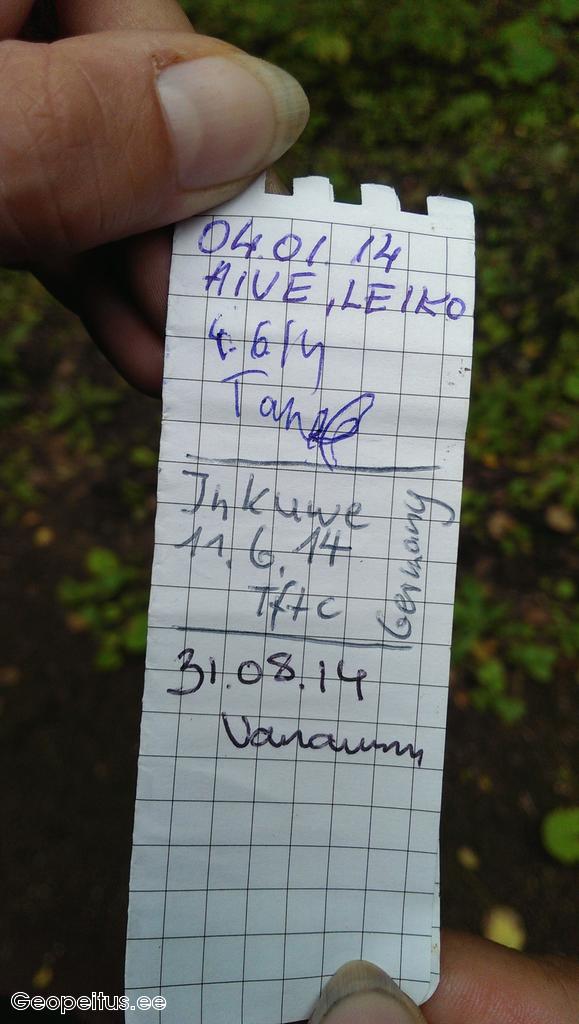 04.01.14
AIVE, LEIKO
4.6.14
Inkuwe
11.6.14
Tftc
Germany
31.08.14
Geopeitus.ee